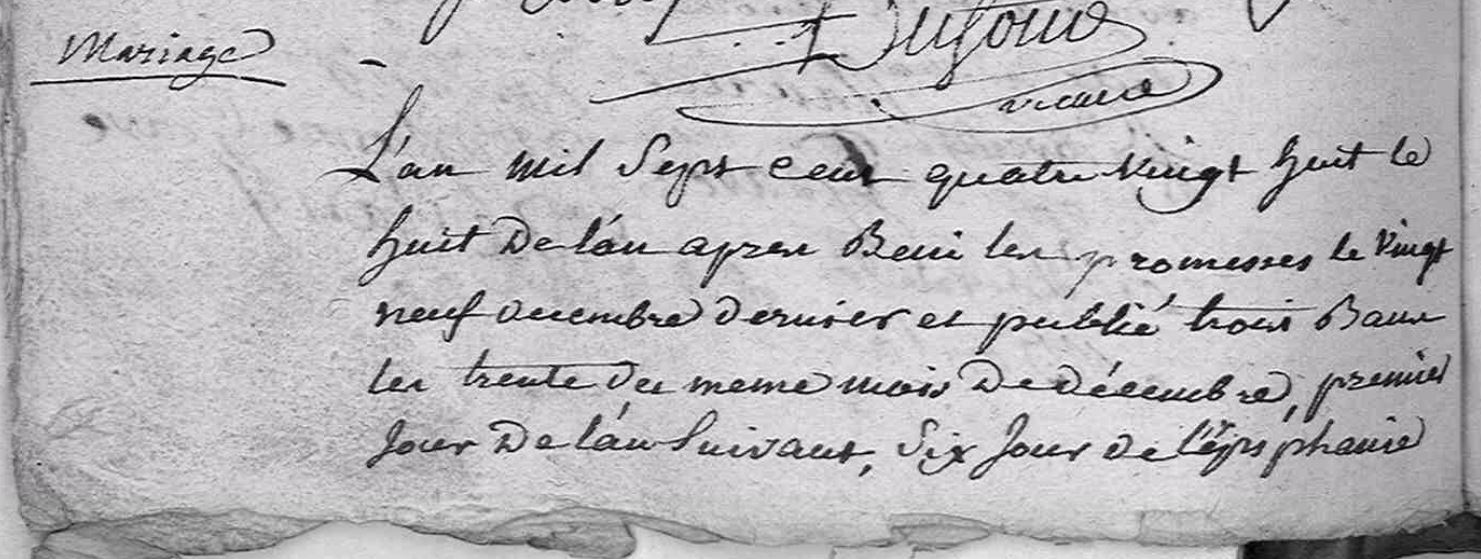 Mariage
Dufour
vicaire
L'an mil sept cent quatre vingt huit le
huit de l'an apres Beni les promesses le vingt
neuf decembre dernier et publié trois Bans
les trente du meme mois de décembre, premier
jour de l'an suivant, six jour de l'épiphanie